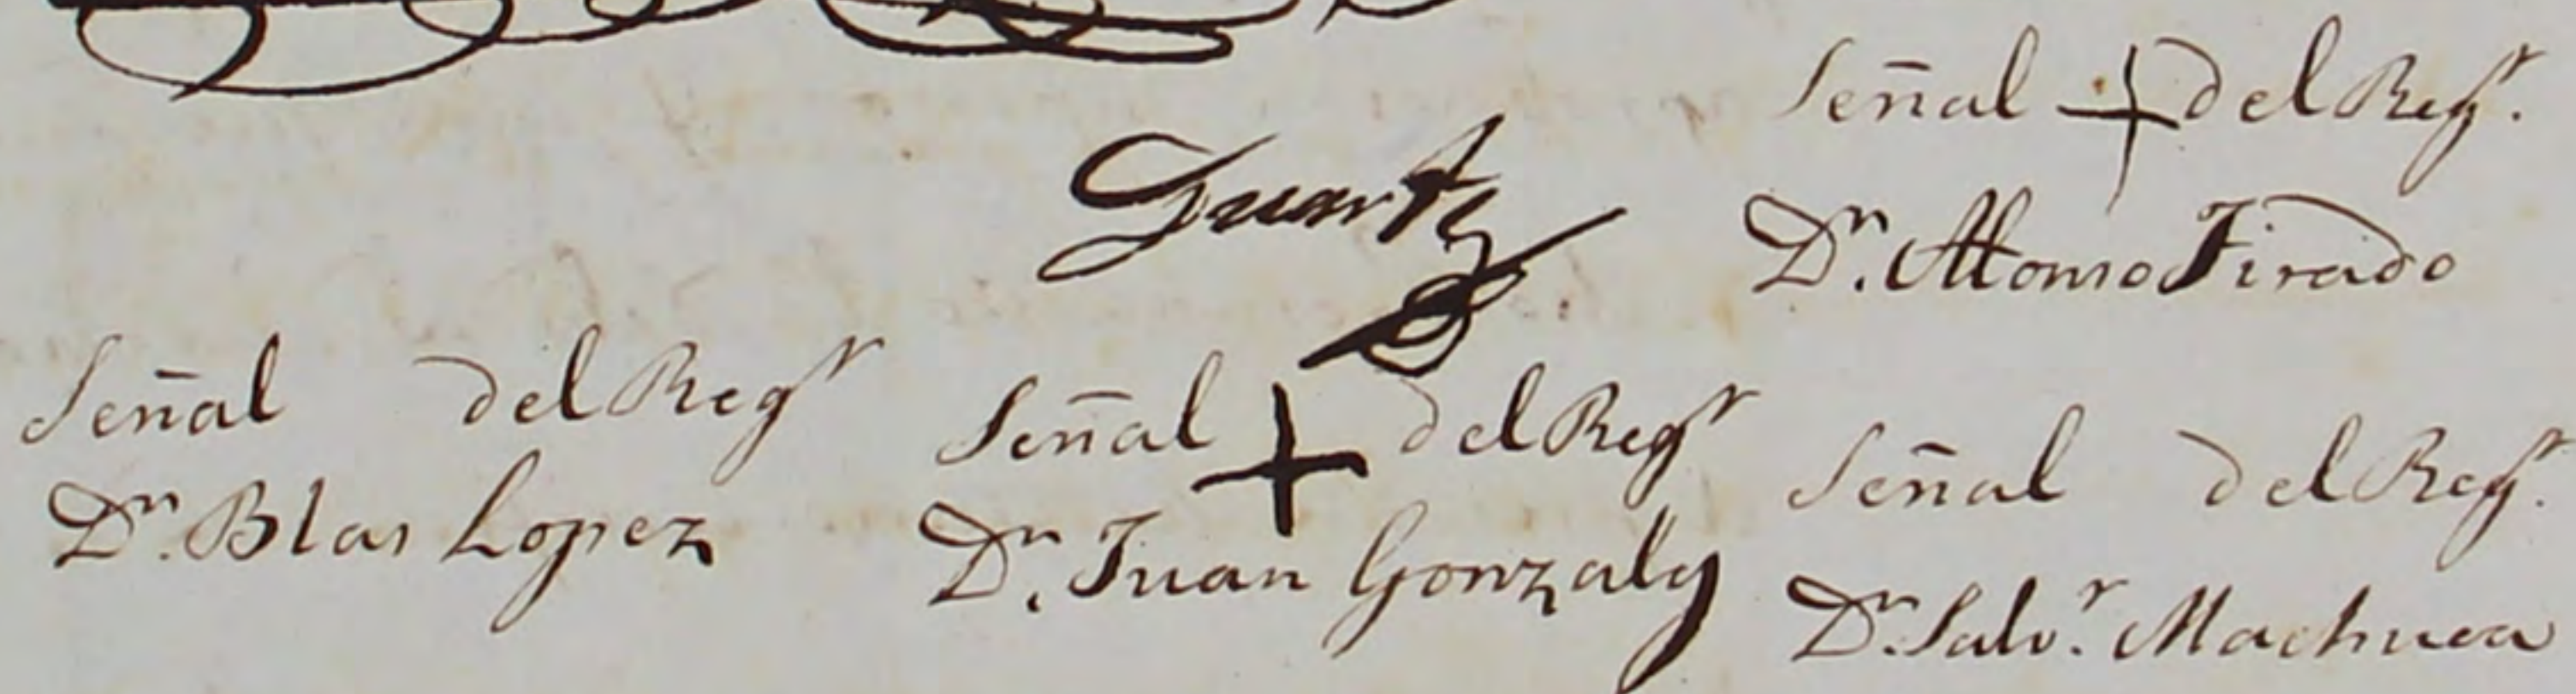 Señal + del Regr.
Dn. Alonso Tirado
Señal del Regr
Dn. Blas Lopez
Señal + del Regr
Dn. Juan Gonzalez
Señal del Regr.
Dn. Salvr. Machuca